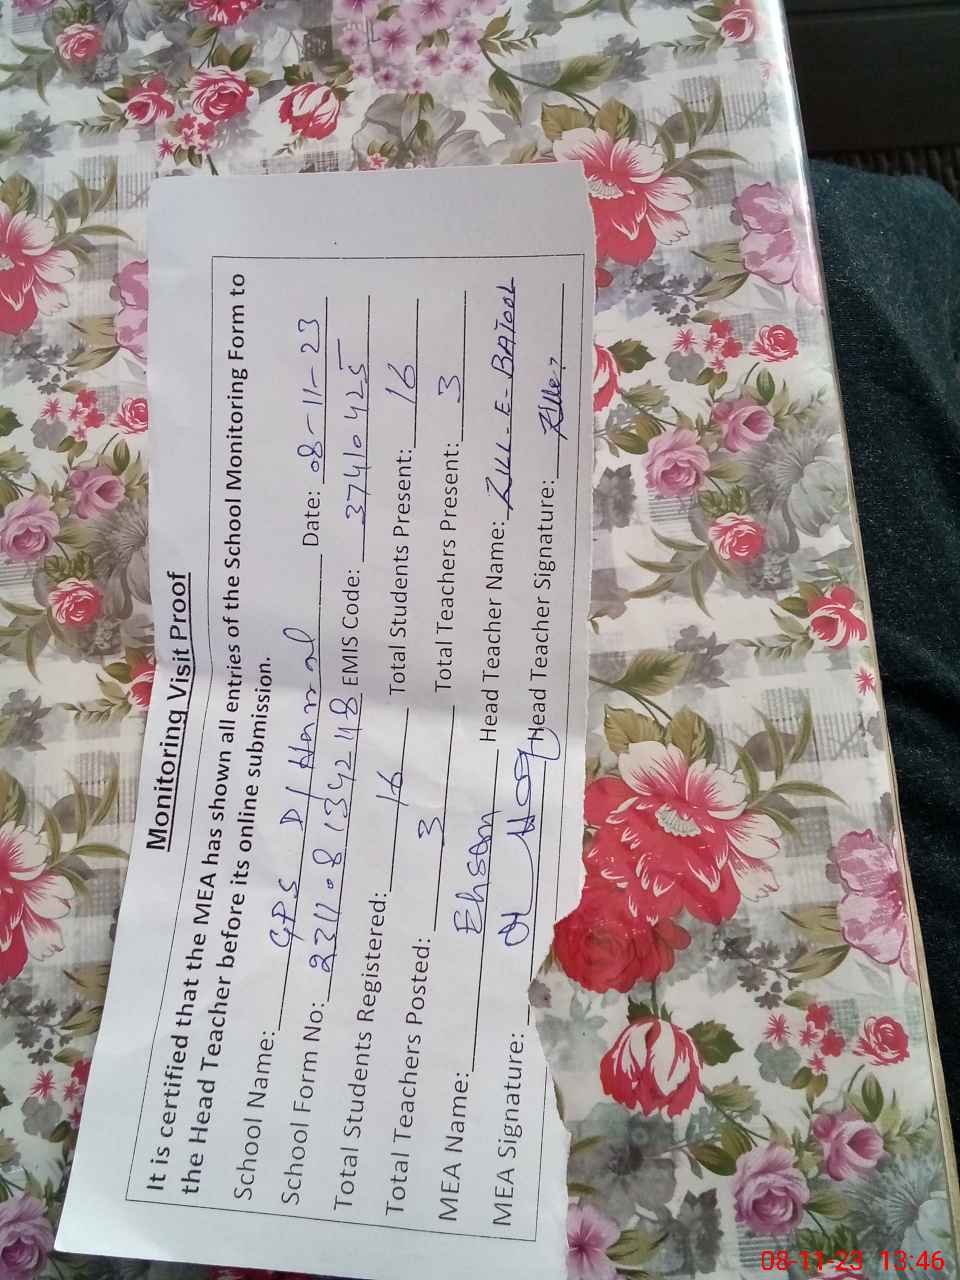 Monitoring Visit Proof
It is certified that the MEA has shown all entries of the School Monitoring Form to
the Head Teacher before its online submission.
School Name: GPS D/ Date: 08-11-23
School Form No: 2311081342118 EMIS Code: 37410425
Total Students Registered: 16 Total Students Present: 16
Total Teachers Posted: 3 Total Teachers Present: 3
MEA Name: Ehsan Head Teacher Name: ZILL-E-BATOOL
MEA Signature: Head Teacher Signature:
08-11-23 13:46